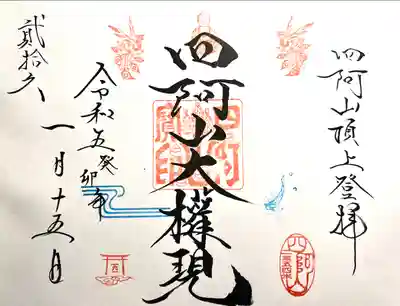 四阿山頂上登拝
四阿山大権現
令和五癸卯年
一月十五日
貳拾
四阿山